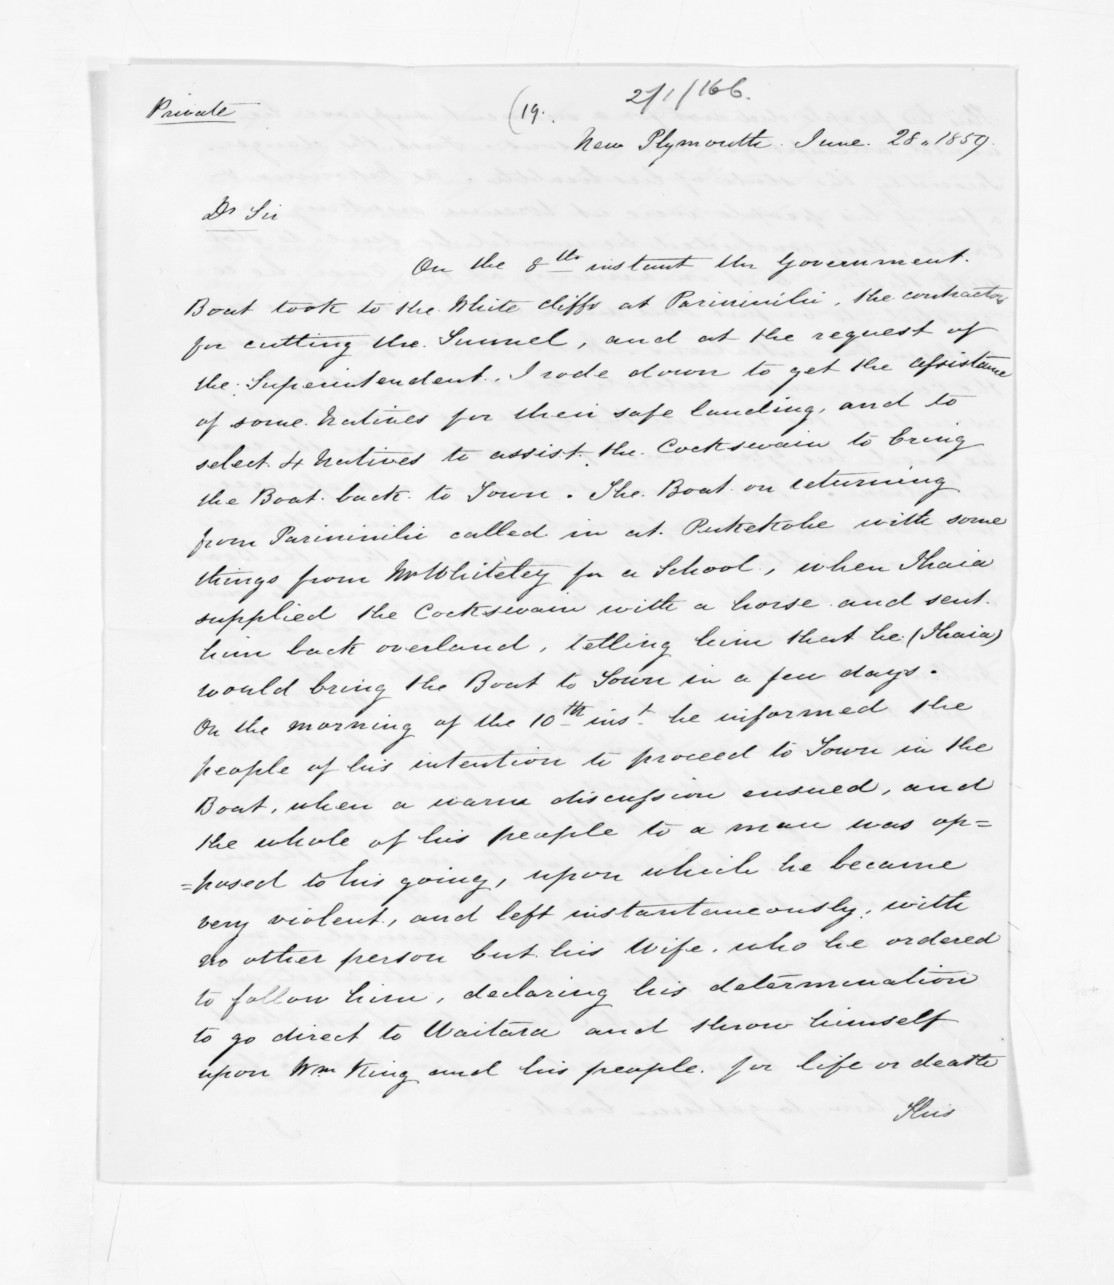 Private
(19.
2/1/166.
New Plymouth. June. 28. 1859.
Dr Sir
On the 8th instant the Government.
Boat took to the White cliffs at Parininihi, the contractors
for cutting the Tunnel, and at the request of
the Superintendent, I rode down to get the assistance
of some Natives for their safe landing, and to
select 4 Natives to assist the Cockswain to bring
the Boat back to Town. The Boat on returning
from Parininihi called in at Pukekohe with some
things from Mr Whiteley for a School, when Ihaia
supplied the Cockswain with a horse and sent
him back overland, telling him that he (Ihaia)
would bring the Boat to Town in a few days.
On the morning of the 10th inst he informed the
people of his intention to proceed to Town in the
Boat, when a warm discussion ensued, and
the whole of his people to a man was op=
=posed to his going, upon which he became
very violent, and left instantaneously, with
no other person but his Wife, who he ordered
to follow him, declaring his determination
to go direct to Waitara and throw himself
upon Wm King and his people. for life or death
This